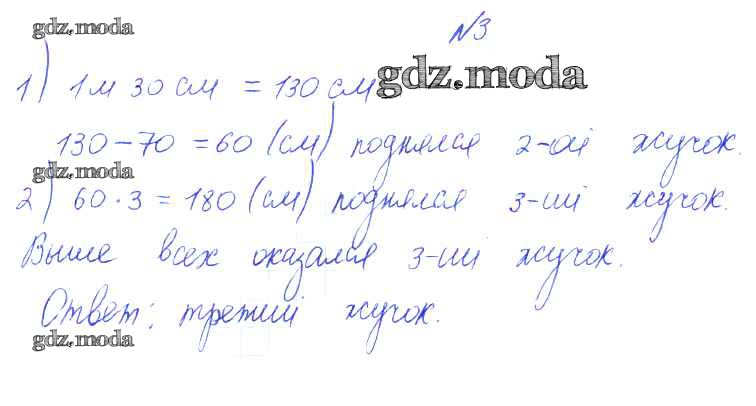 gdz.moda
№3
1) 1м 30 см = 130 см
gdz.moda
130 - 70 = 60 (см) поднялся 2-ой жучок.
gdz.moda
2) 60 · 3 = 180 (см) поднялся 3-ий жучок.
Выше всех оказался 3-ий жучок.
Ответ: третий жучок.
gdz.moda